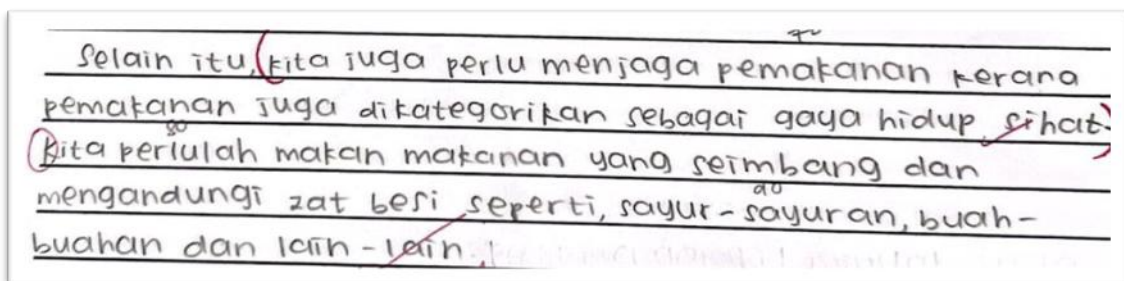 Selain itu, kita juga perlu menjaga pemakanan kerana
pemakanan juga dikategorikan sebagai gaya hidup sihat.
Kita perlulah makan makanan yang seimbang dan
mengandungi zat besi seperti, sayur-sayuran, buah-
buahan dan lain-lain.